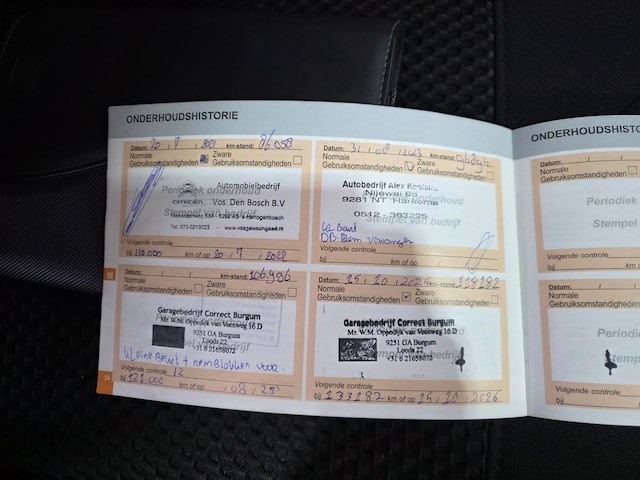 ONDERHOUDSHISTORIE
Datum: 20 , 7 , 2021 km-stand: 86058
Normale Gebruiksomstandigheden Zware Gebruiksomstandigheden
Periodiek onderhoud
Automobielbedrijf
CITROËN Vos Den Bosch B.V
Stempel van bedrijf
Tel. 073-6219023 www.vosgewoongoed.nl
Volgende controle
bij 110.000 km of op 20 , 7 , 2022
Datum: 31 , 08 , 2023 km-stand:
Normale Gebruiksomstandigheden Zware Gebruiksomstandigheden
Autobedrijf Alex
9281 NT Harkema
0512 - 363225
Stempel van bedrijf
Volgende controle
bij km of op
Datum: km-stand: 106986
Normale Gebruiksomstandigheden Zware Gebruiksomstandigheden
Garagebedrijf Correct Burgum
Mr. W.M. Oppedijk van Veenweg 16 D
9251 GA Burgum
Loods 22
+31 6 21658072
Kleine Beurt + remblokken voor.
Volgende controle 12
bij 121.000 km of op , 08 , 25
Datum: 15 , 10 , 2025 km-stand: 118182
Normale Gebruiksomstandigheden Zware Gebruiksomstandigheden
Garagebedrijf Correct Burgum
Mr. W.M. Oppedijk van Veenweg 16 D
9251 GA Burgum
Loods 22
+31 6 21658072
Volgende controle
bij 133182 km of op 15 , 10 , 2026
24
ONDERHOUDSHISTO
Datum:
Normale
Gebruiksomstandigheden
Periodiek
Stempel
Volgende controle
bij
Datum:
Normale
Gebruiksomstandigheden
Periodiek
Stempel
Volgende controle
bij